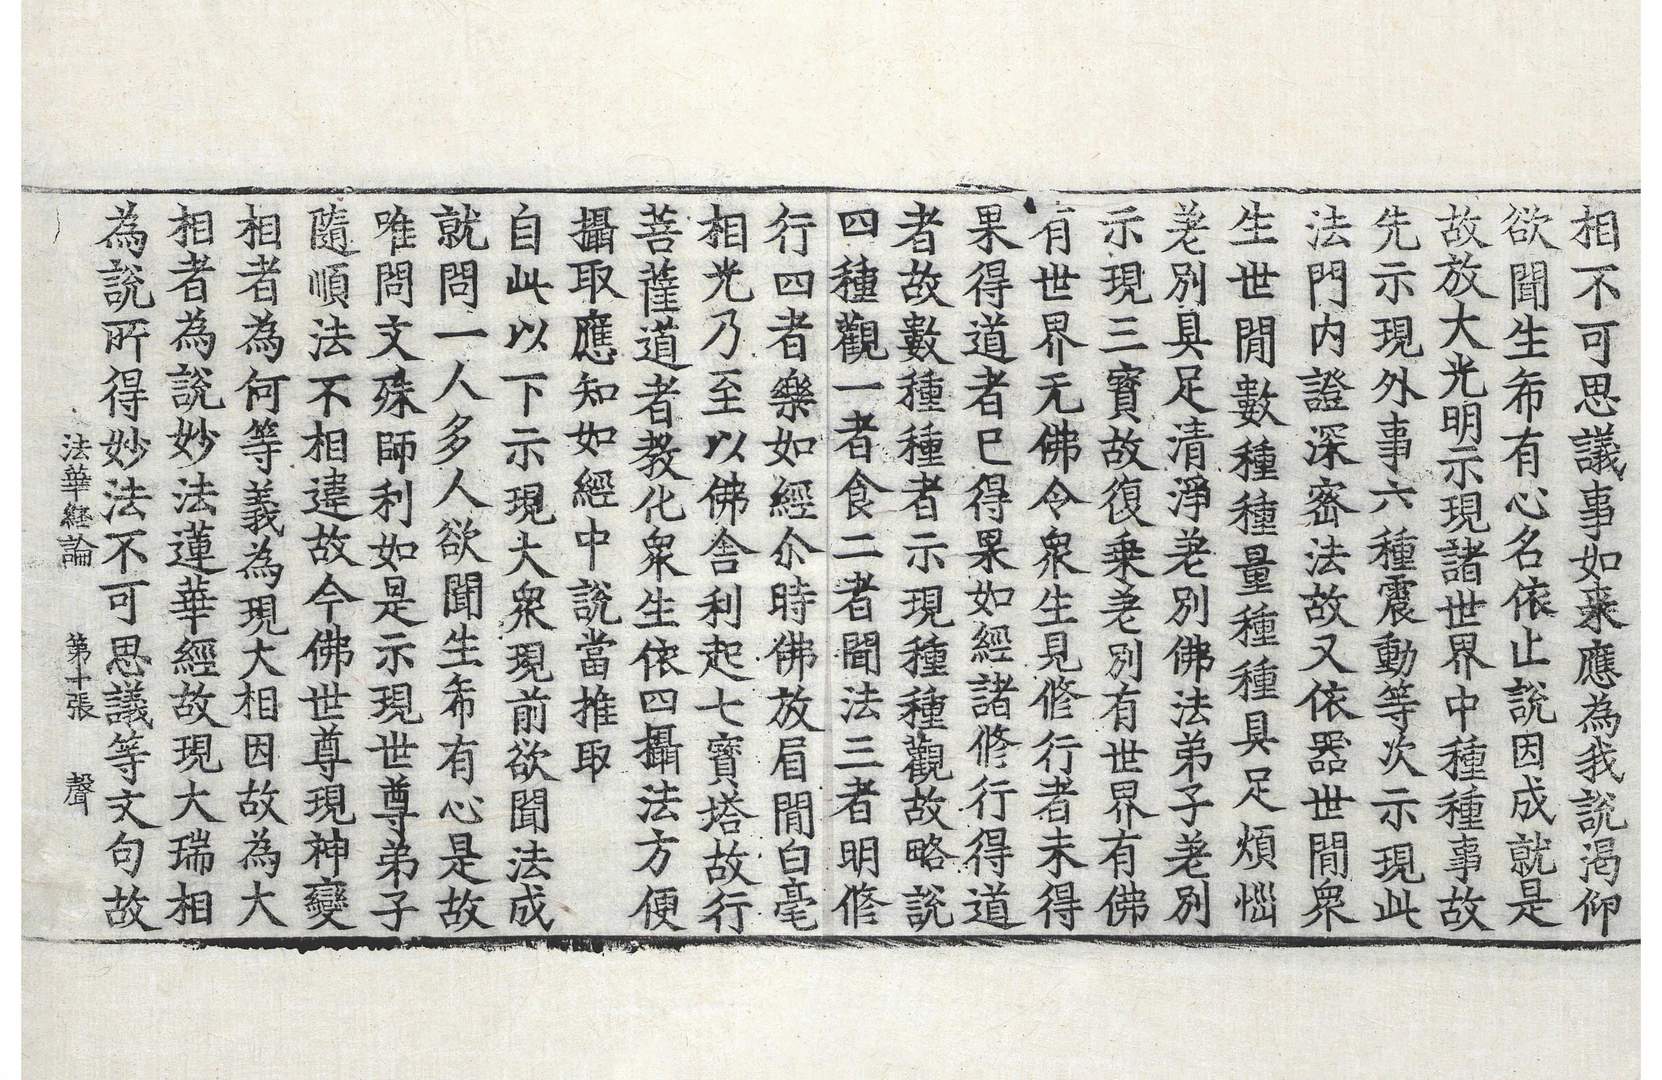 相不可思議事如来應為我說渴仰
欲聞生希有心名依止說因成就是
故放大光明示現諸世界中種種事故
先示現外事六種震動等次示現此
法門内證深密法故又依器世閒衆
生世閒數種種量種種具足煩惱
差別具足清淨差別佛法弟子差別
示現三寶故復乘差別有世界有佛
有世界无佛令衆生見修行者未得
果得道者已得果如經諸修行得道
者故數種種者示現種種觀故略說
四種觀一者食二者聞法三者明修
行四者樂如經尒時佛放眉閒白毫
相光乃至以佛舍利起七寶塔故行
菩薩道者教化衆生依四攝法方便
攝取應知如經中說當推取
自此以下示現大衆現前欲聞法成
就問一人多人欲聞生希有心是故
唯問文殊師利如是示現世尊弟子
隨順法不相違故今佛世尊現神變
相者為何等義為現大相因故為大
相者為說妙法蓮華經故現大瑞相
為說所得妙法不可思議等文句故
法華経論 第十張 聲